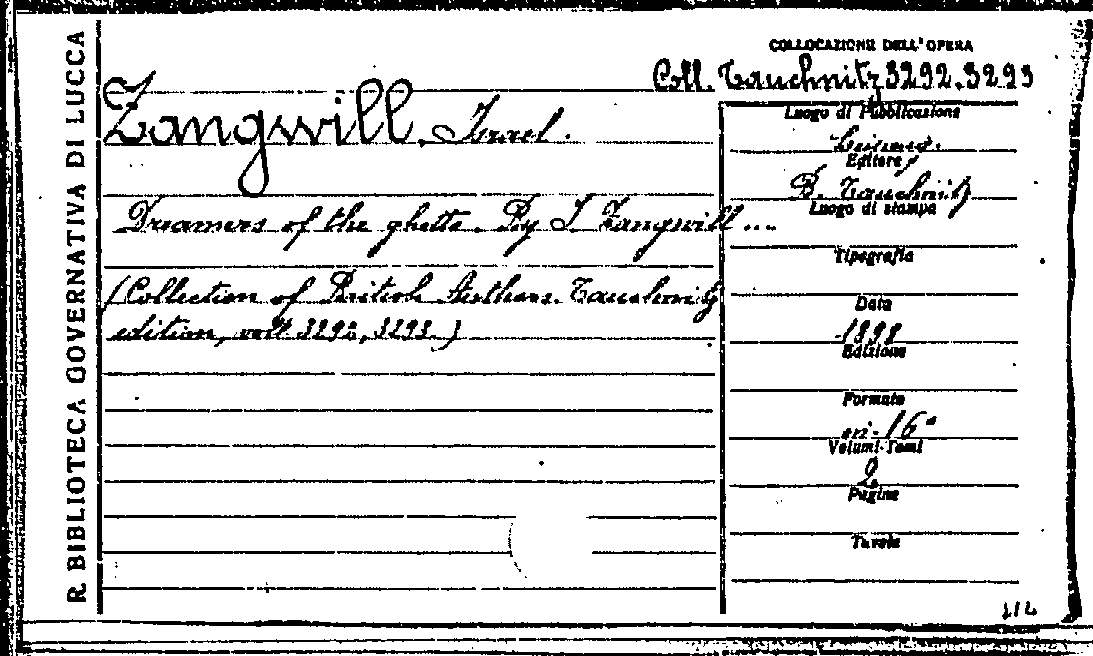 R. BIBLIOTECA GOVERNATIVA DI LUCCA
COLLOCAZIONE DELL'OPERA
Coll. Tauchnitz 3292.3293
Zangwill, Israel.
Dreamers of the ghetto. By I. Zangwill...
(Collection of British Authors. Tauchnitz
edition, voll. 3292, 3293.)
Luogo di Pubblicazione
Editore
B. Tauchnitz
Luogo di stampa
Tipografia
Data
1898
Edizione
Formato
in-16°
Volumi-Tomi
2
Pagine
Tavole